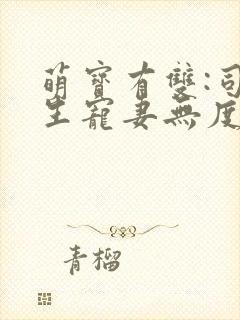 萌寶有雙:司
生寵妻無度
青榴